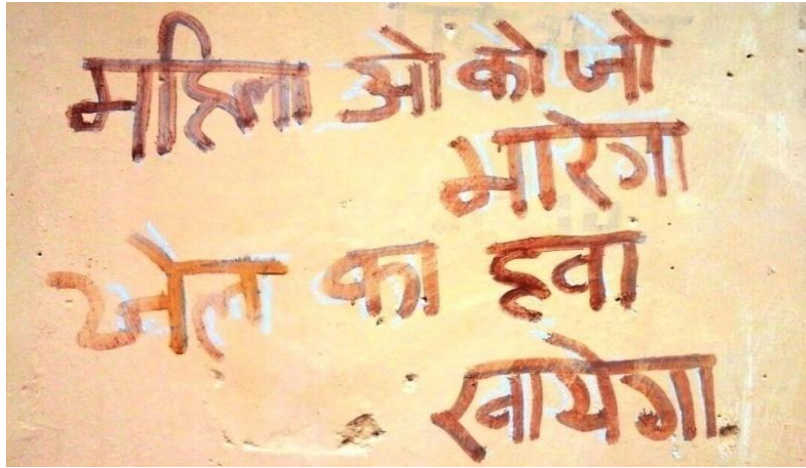 महिला ओ को जो
मारेगा
जेल का हवा
खायेगा